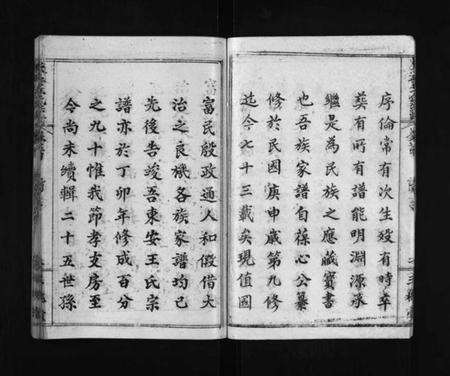 序倫常有次生殺有時卒
奠有所有譜能明淵源承
繼是為民族之應藏寶書
也吾族家譜自葆心公纂
修於民國庚申歲第九修
迄今七十三載矣現值國
富民殷政通人和假借大
治之良機各族家譜均已
先後告竣吾東安王氏宗
譜亦於丁卯年修成百分
之九十惟我節孝支房至
今尚未續輯二十五世孫